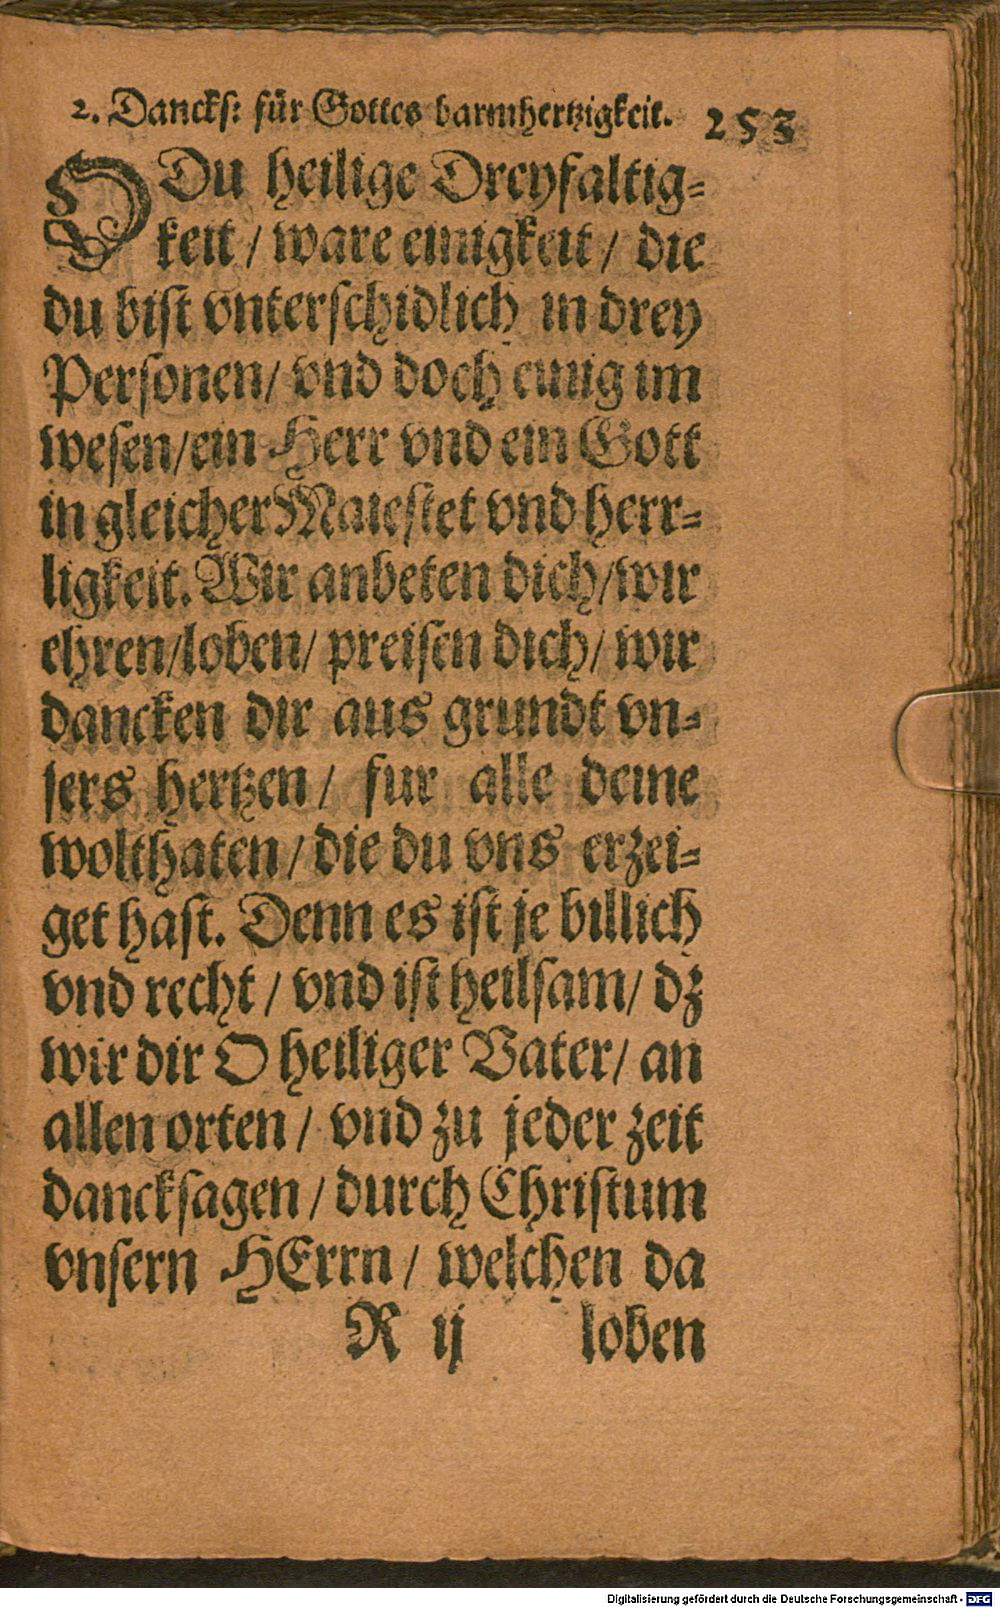 2. Dancks: für Gottes barmhertzigkeit. 253
O Du heilige Dreyfaltig=
keit / ware einigkeit / die
du bist vnterschidlich in drey
Personen/ vnd doch einig im
wesen/ein Herr vnd ein Gott
in gleicher Maiestet vnd herr=
ligkeit. Wir anbeten dich/wir
ehren/loben/ preisen dich/ wir
dancken dir aus grundt vn=
sers hertzen / fur alle deine
wolthaten / die du vns erzei=
get hast. Denn es ist je billich
vnd recht / vnd ist heilsam/ dz
wir dir O heiliger Vater/ an
allen orten / vnd zu jeder zeit
dancksagen / durch Christum
vnsern HErrn / welchen da
R ij loben
Digitalisierung gefördert durch die Deutsche Forschungsgemeinschaft - DFG